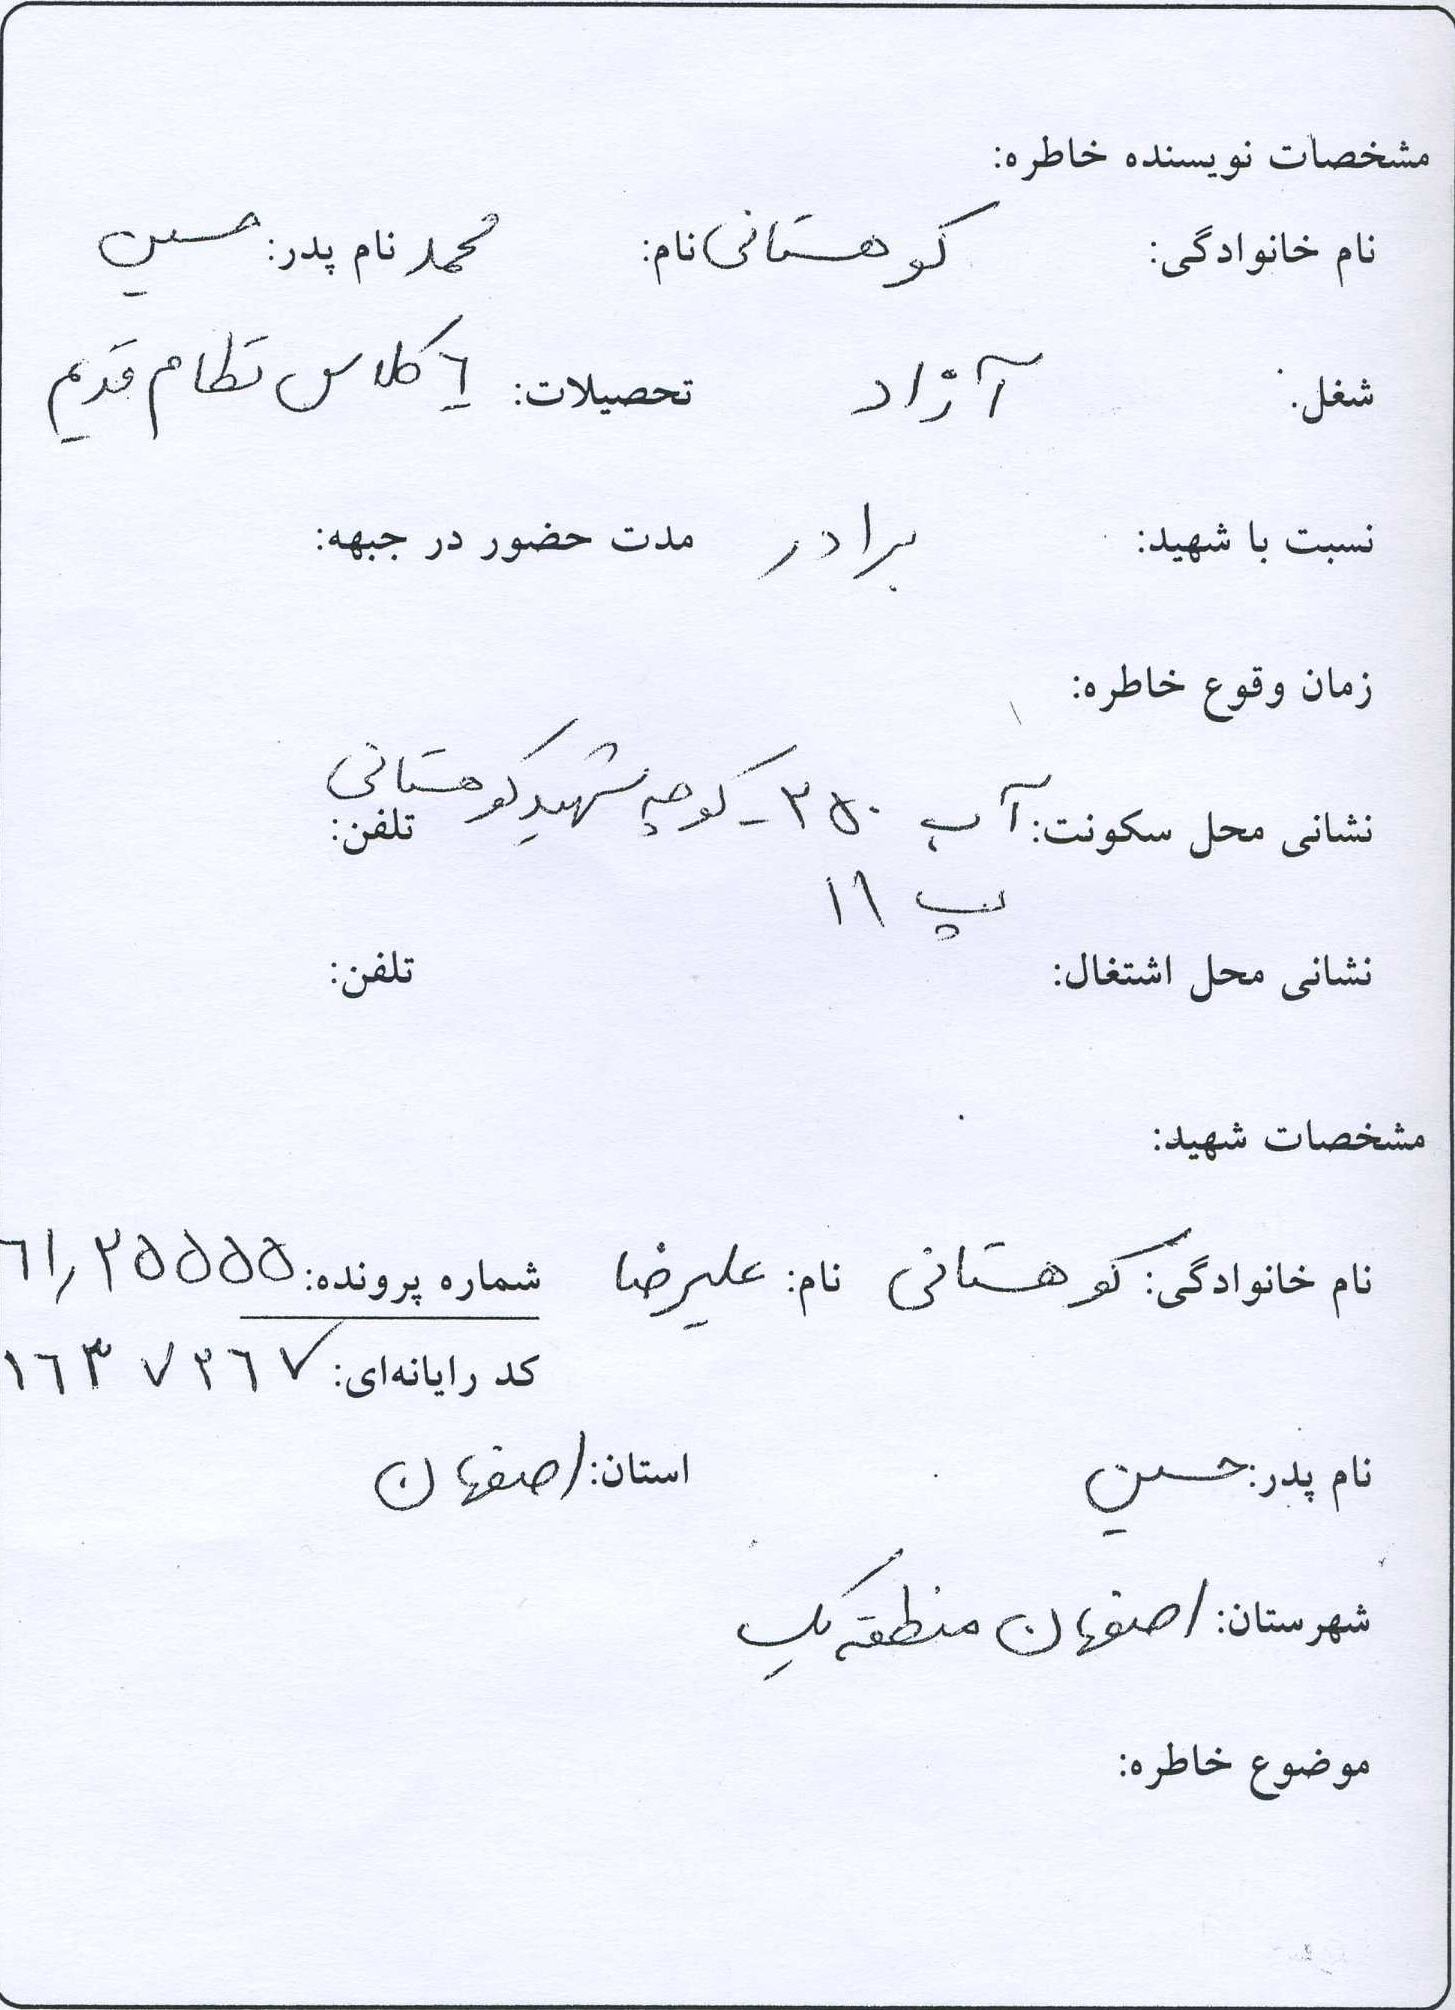 مشخصات نویسنده خاطره:
نام خانوادگی: کوهستانی نام: محمد نام پدر: حسین
شغل: آزاد تحصیلات: ٦ کلاس نظام قدیم
نسبت با شهید: برادر مدت حضور در جبهه:
زمان وقوع خاطره:
نشانی محل سکونت: آب ۲۵۰ - کوچه شهید کوهستانی تلفن:
پ ۱۱
نشانی محل اشتغال: تلفن:
مشخصات شهید:
نام خانوادگی: کوهستانی نام: علیرضا شماره پرونده:
کد رایانه‌ای: ۱٦۳۷۲٦۷
نام پدر: حسین استان: اصفهان
شهرستان: اصفهان منطقه یک
موضوع خاطره: